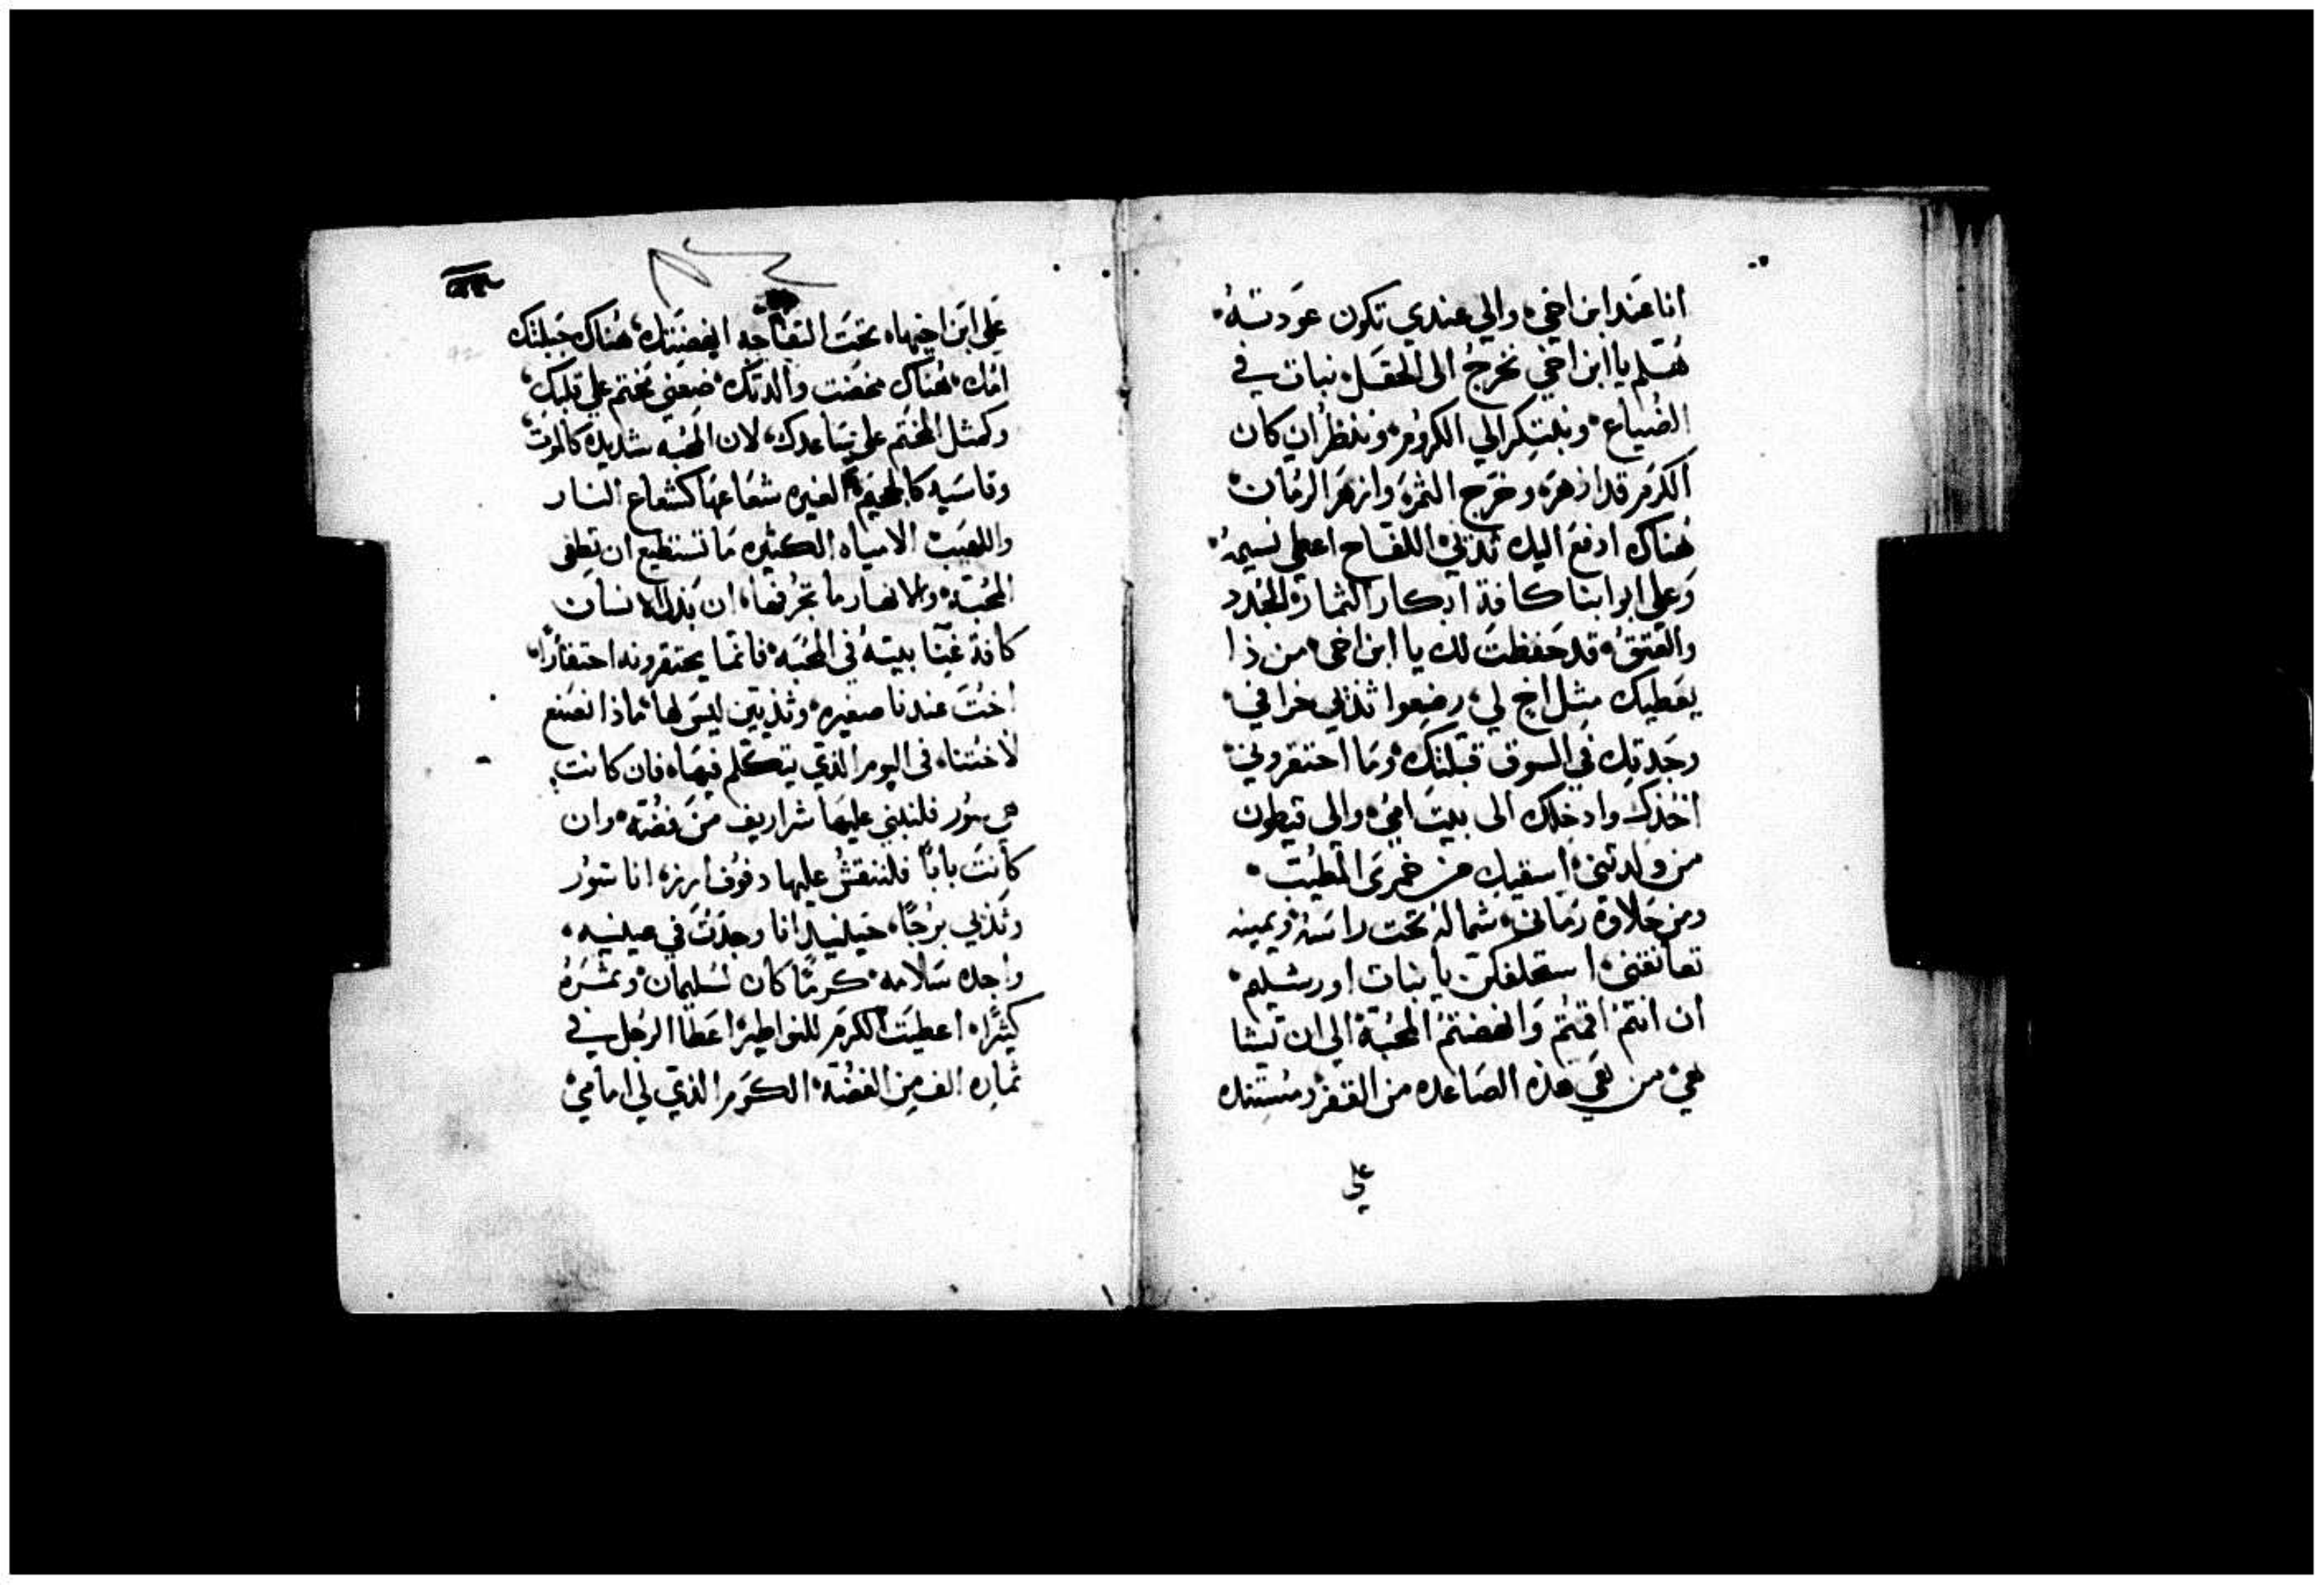 انا عند ابن اخي، والي عندي تكون عودته،
هلم يا ابن اخي نخرج الى الحقل، نبات في
الضياع، ونبتكر الي الكروم، وننظر ان كان
الكرم قد ازهر، وخرج الثمر، وازهر الرمان،
هناك ادفع اليك ثديي، اللفاح اعطى نسيمه،
وعلى ابوابنا كافة ابكار الثمار، الجدد
والعتق، قد حفظت لك يا ابن اخي، من ذا
يعطيك مثل اخ لي، رضعوا ثديي خرافي،
وجدتك في السوق قبلتك، وما احتقروني،
اخذك وادخلك الى بيت امي، والى قيطون
من ولدتني، اسقيك من خمري المطيب،
ومن حلاوة رماني، شماله تحت راسي، ويمينه
تعانقني، استحلفكن يا بنات اورشليم،
ان انتم اقمتم وانهضتم المحبة الي ان تشا
هي، من هي هذه الصاعده من القفر، مستنده
علي
على ابن اخيها، تحت التفاحه انهضتك، هناك حبلتك
امك، هناك مخضت والدتك، ضعني كختم على قلبك،
وكمثل الختم على ساعدك، لان المحبه شديدة كالموت،
وقاسيه كالجحيم الغيره شعاعها كشعاع النار
واللهيب، الامياه الكثيره ما تستطيع ان تطفى
المحبة، والانهار ما تجرفها، ان بذل الانسان
كافة غنا بيته في المحبه، فانما يحتقرونه احتقارا،
اخت عندنا صغيره، وثديين ليس لها، ماذا نصنع
لاختنا، في اليوم الذي يتكلم فيها، فان كانت
هي سور فلنبني عليها شراريف من فضة، وان
كانت بابا فلننقش عليها دفوف ارز، انا سور
وثديي برجا، حينيذ انا وجدت في عينيه،
واجده سلامه، كرما كان لسليمان، وثمره
كثيرا، اعطيت الكرم للنواطير، اعطا الرجل في
ثماره الف من الفضة، الكرم الذي لي امامي،